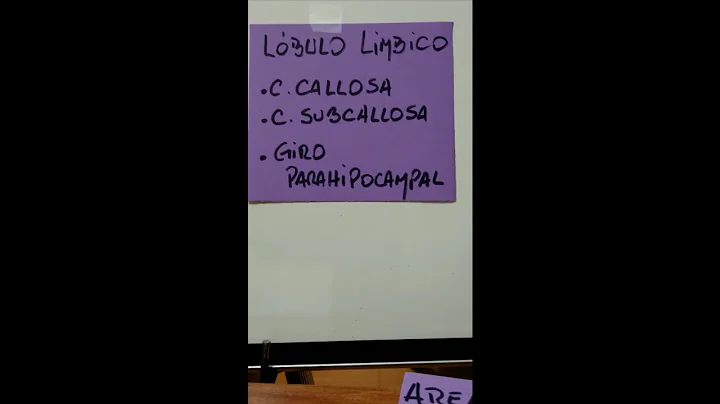 LÓBULO LíMBiCO
• C. CALLOSA
• C. SUBCALLOSA
• GiRO
PARAHiPOCAMPAL
ARE